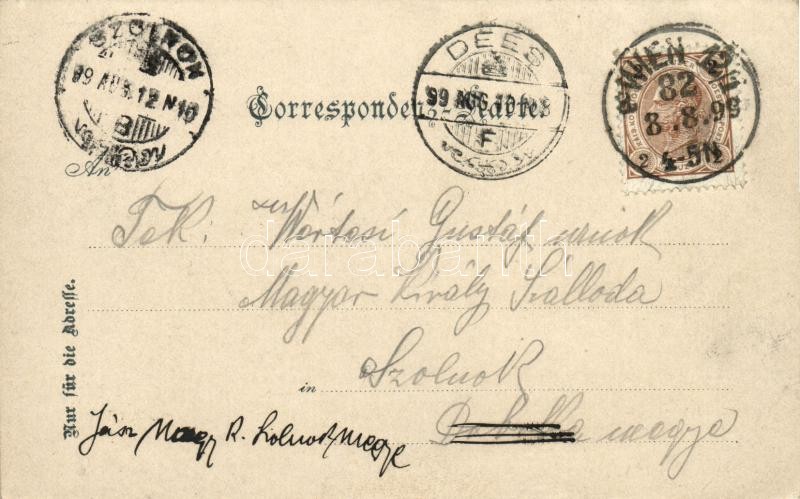 SZOLNOK
99 AUG. 12 N 10
B
DEES
99 AUG. 10
F
WIEN
82
8.8.99
2 4-5N
Correspondenz-Karte
An
Tek: Mártosi Gusztáf urnok
Magyar Király Szálloda
in Szolnok
megye
Jász Nagy K. Szolnok megye
Nur für die Adresse.
darabanth